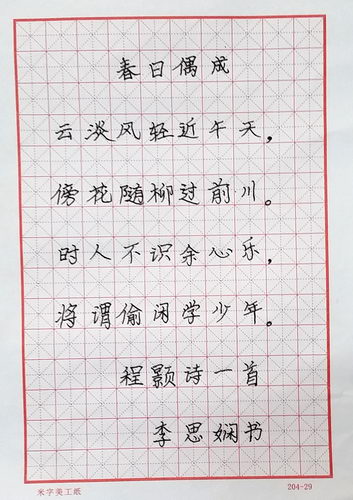 春日偶成
云淡风轻近午天，
傍花随柳过前川。
时人不识余心乐，
将谓偷闲学少年。
程颢诗一首
李思娴书
米字美工纸 204-29